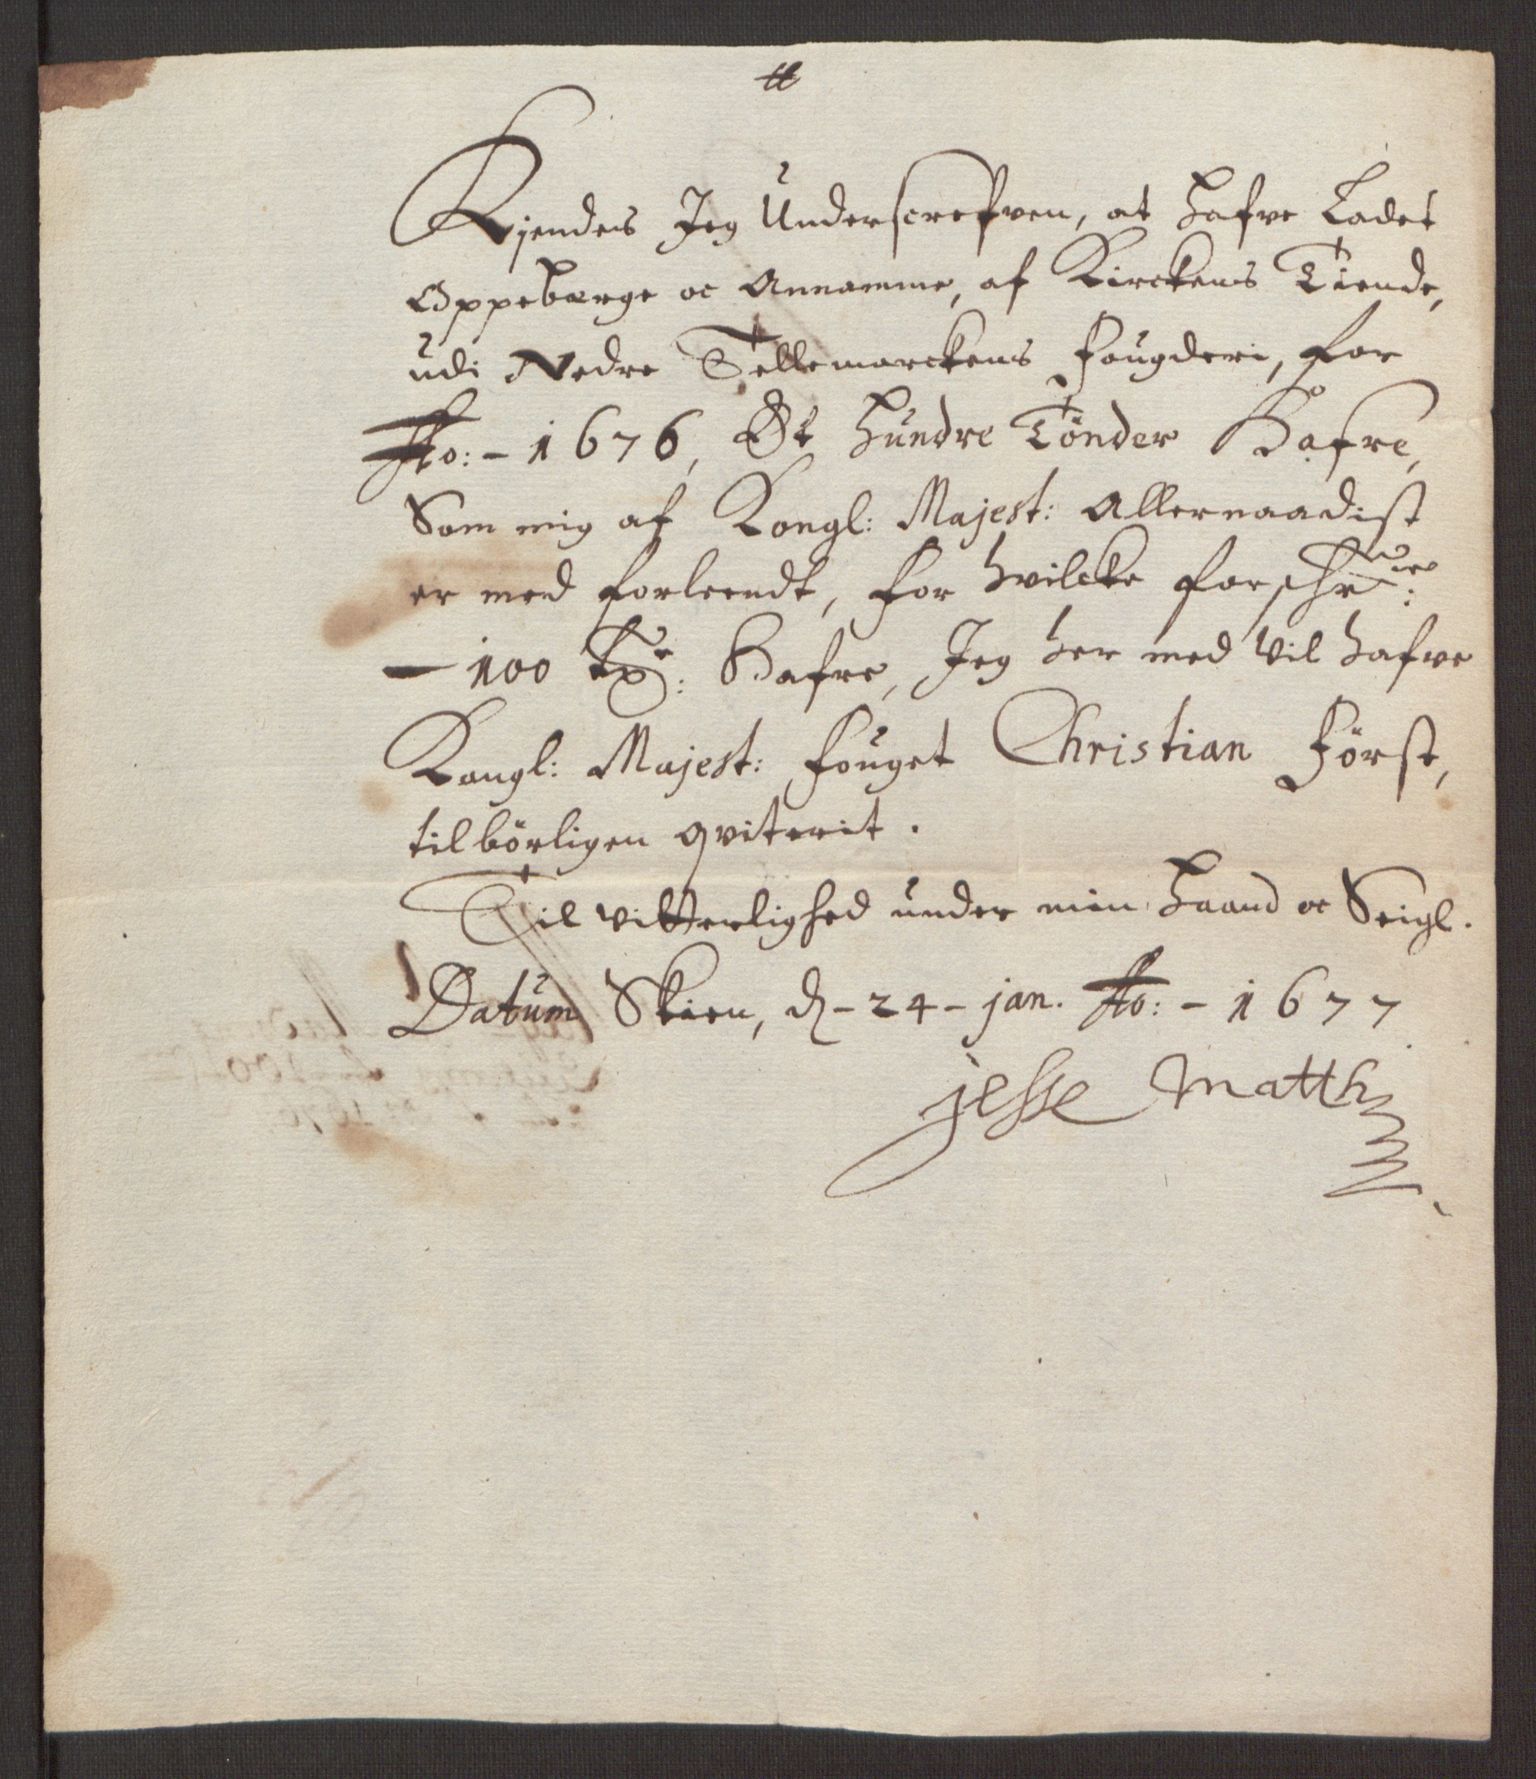 Kjendes Jeg Underscrefven, at hafve Ladet
Oppebærge oc Annamme, af Kirckens Tiende,
udi Nedre Tellemarckens fougderi, for
Ao: - 1676, Et hundre Tönder Hafre,
Som mig af Kongl: Majest: Allernaadist
er med forleendt, for hvilcke
- 100 Tr: Hafre, Jeg her med Vil hafve
Kongl: Majest: fouget Christian Först,
tilbörligen qviterit.
Til vitterlighed under min haand oc Seigl.
Datum Skien, d - 24 - jan. Ao: - 1677
jesse Matth